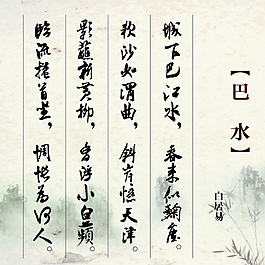 【巴水】
白居易
城下巴江水,春来似麹尘。
软沙如渭曲,斜岸憶天津。
影蘸新黄柳,香浮小白蘋。
临流搔首坐,惆怅为何人。